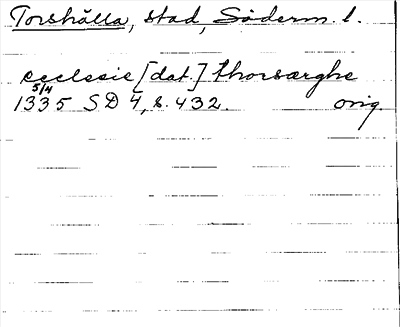 Torshälla, stad, Söderm. l.
ecclesie [dat.] thorsærghe
5/4
1335 SD 4, s. 432. orig.